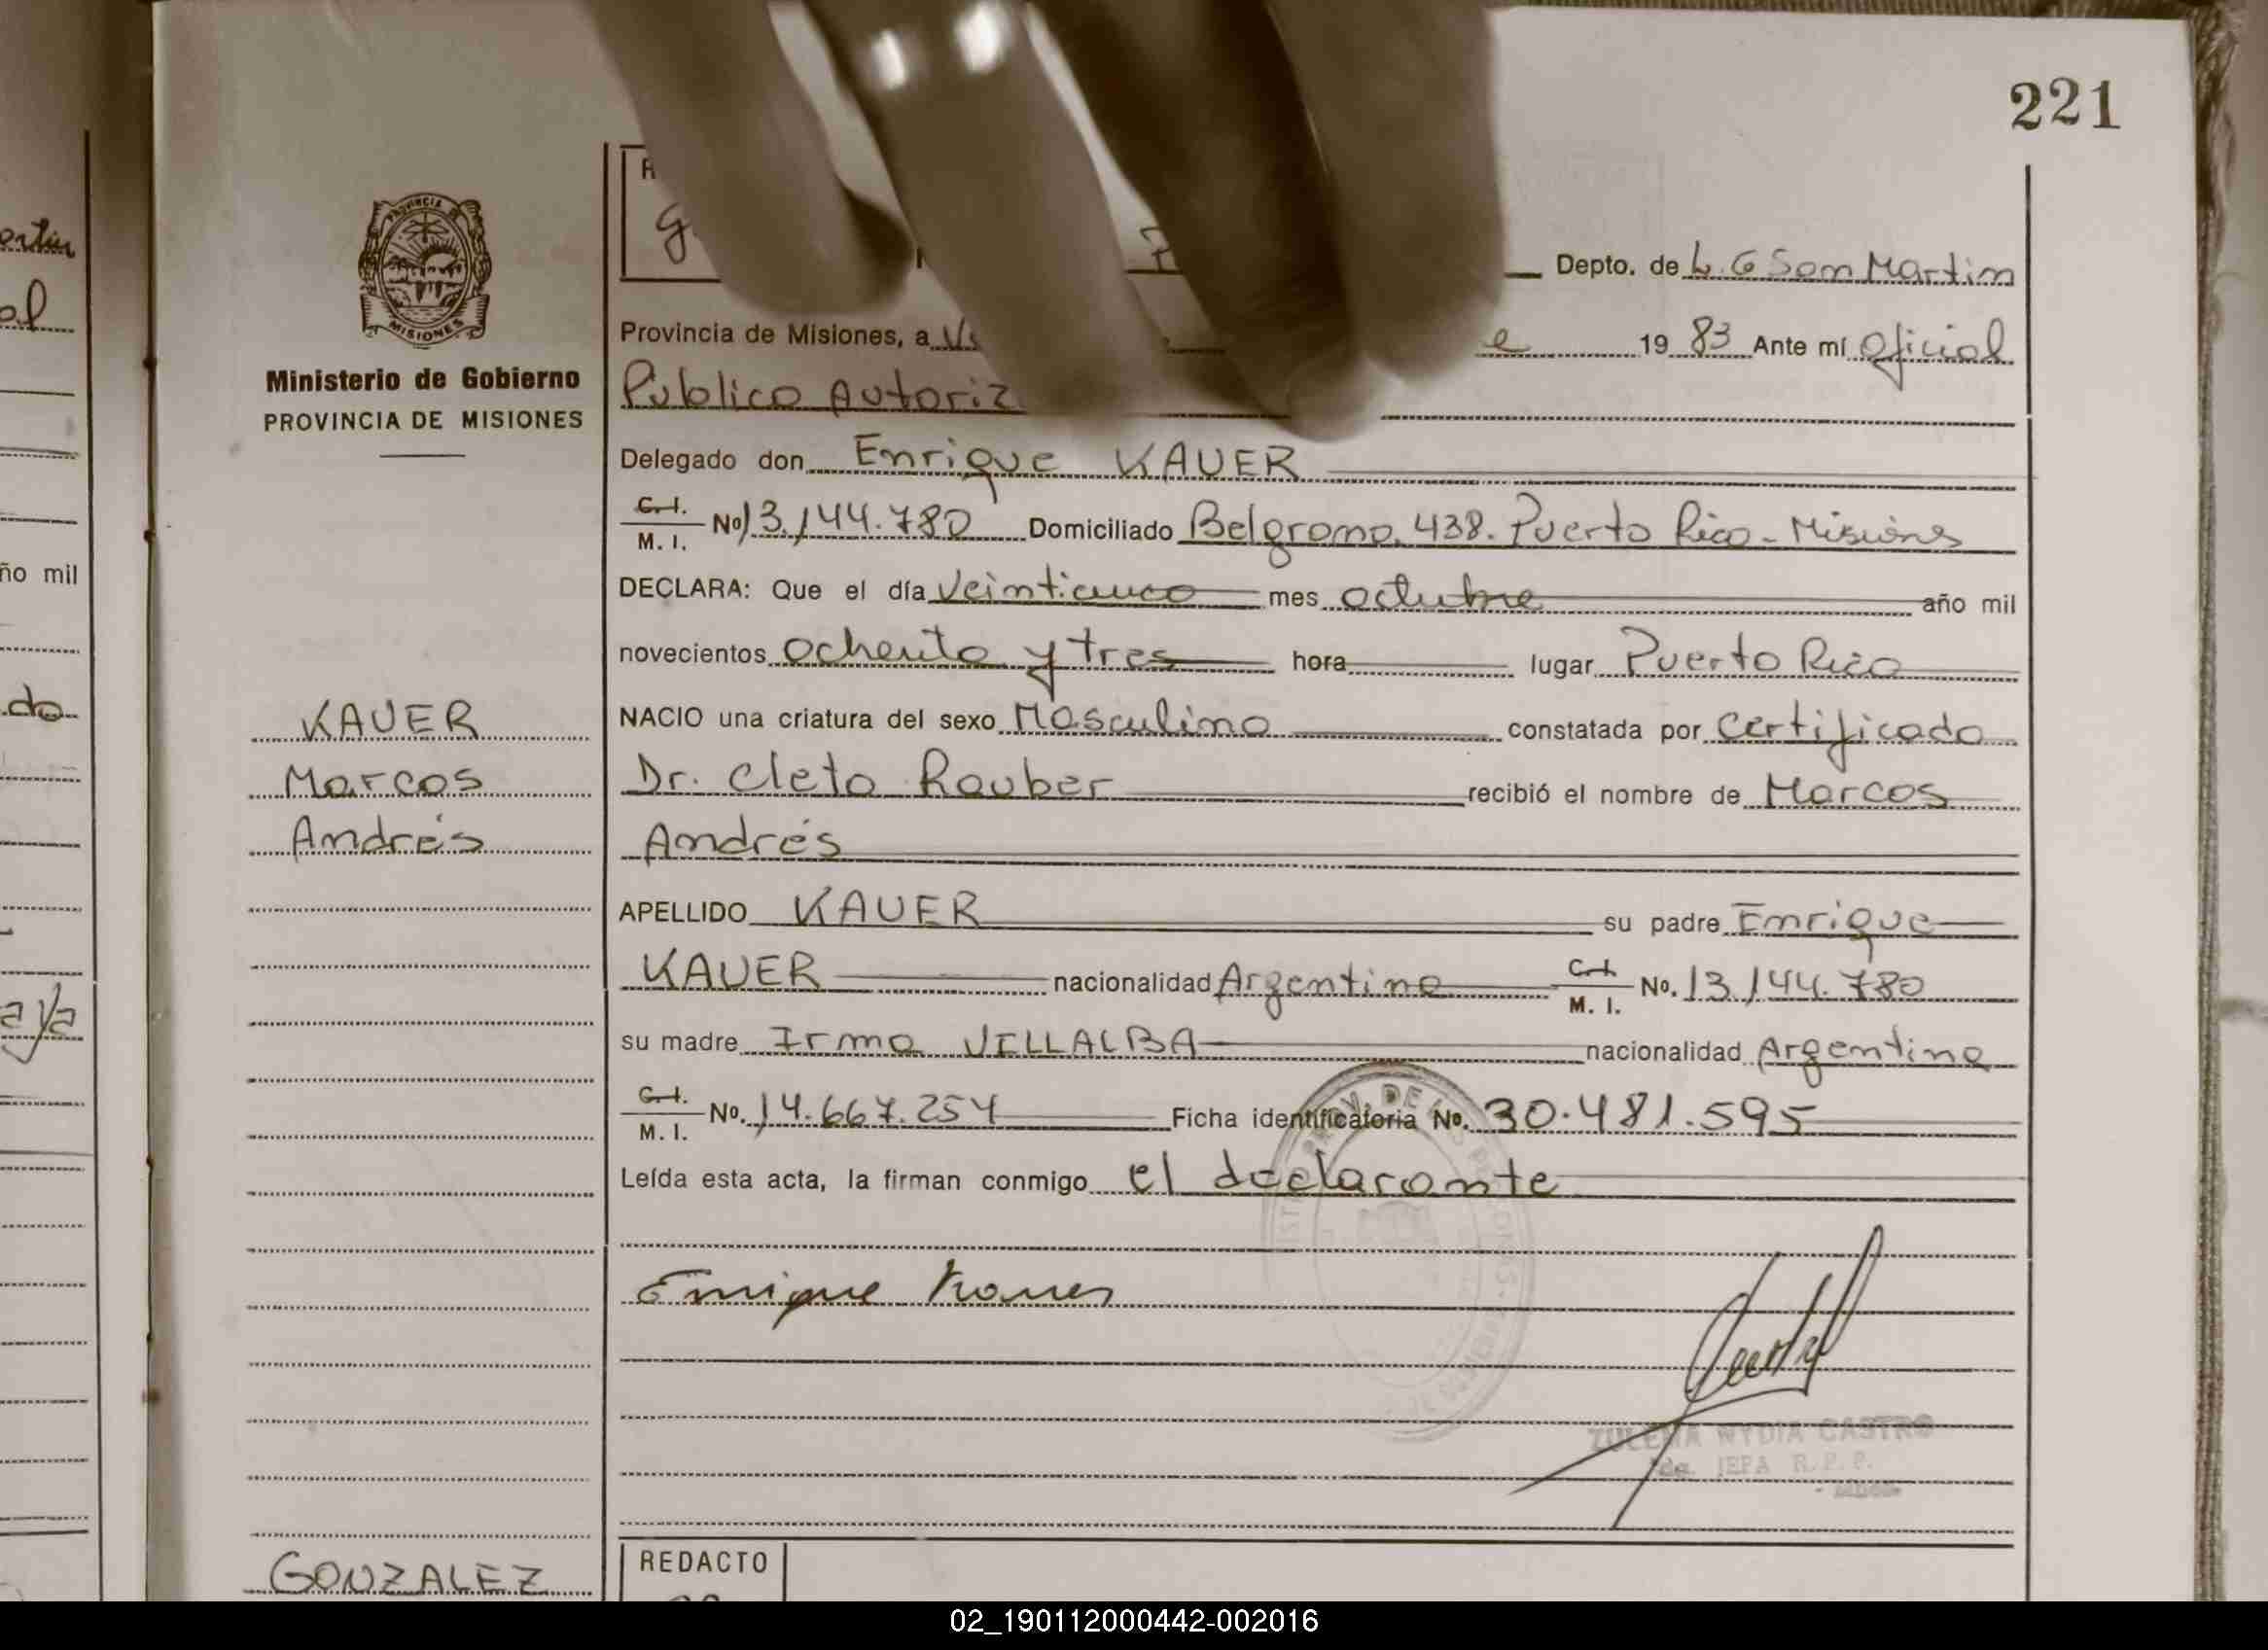 221
PROVINCIA DE
MISIONES
Ministerio de Gobierno
PROVINCIA DE MISIONES
Depto. de L. G San Martin
Provincia de Misiones, a 19 83 Ante mí Oficial
Publico
Delegado don Enrique KAUER
C. I.
M. I. Nº 13.144.780 Domiciliado Belgrano. 438. Puerto Rico - Misiones
DECLARA: Que el día Veinticinco mes octubre año mil
novecientos ochenta y tres hora lugar Puerto Rico
NACIO una criatura del sexo Masculino constatada por Certificado
Dr. Cleto Rauber recibió el nombre de Marcos
Andrés
APELLIDO KAUER su padre Enrique
KAUER nacionalidad Argentina C. I.
M. I. No. 13.144.780
su madre Irma VILLALBA nacionalidad Argentina
C. I.
M. I. No. 14.667.254 Ficha identificatoria No. 30.481.595
Leída esta acta, la firman conmigo el declarante
Enrique Kauer
ZULEMA WYDIA CASTRO
JEFA R. P. P.
KAUER
Marcos
Andrés
GONZALEZ
REDACTO
ño mil
do
02_190112000442-002016